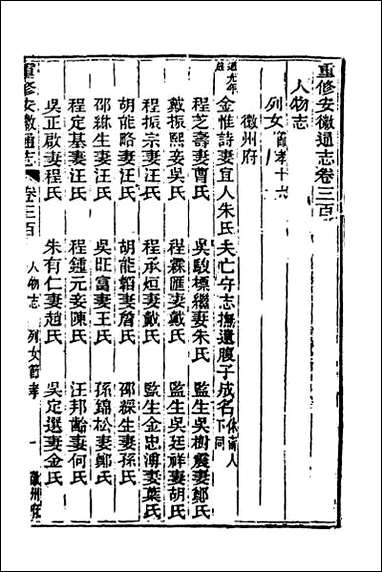 重修安徽通志卷三百
人物志
列女 節孝十六
徽州府
金惟詩妻宜人朱氏夫亡守志撫遺腹子成名 休甯人下同
程芝壽妻曹氏 吳駿標繼妻朱氏 監生吳樹震妻鄭氏
戴振熙妾吳氏 程霖匯妻戴氏 監生吳廷祥妻胡氏
程振宗妻汪氏 程承烜妻戴氏 監生金忠溥妻葉氏
胡能略妻汪氏 胡能韜妻詹氏 邵綵生妻孫氏
邵維生妻汪氏 吳旺富妻王氏 孫錦松妻鄭氏
程定基妻汪氏 程鍾元妾陳氏 汪邦齡妻何氏
吳正啟妻程氏 朱有仁妻趙氏 吳定選妻金氏
重修安徽通志 卷三百 人物志 列女節孝 一 徽州府